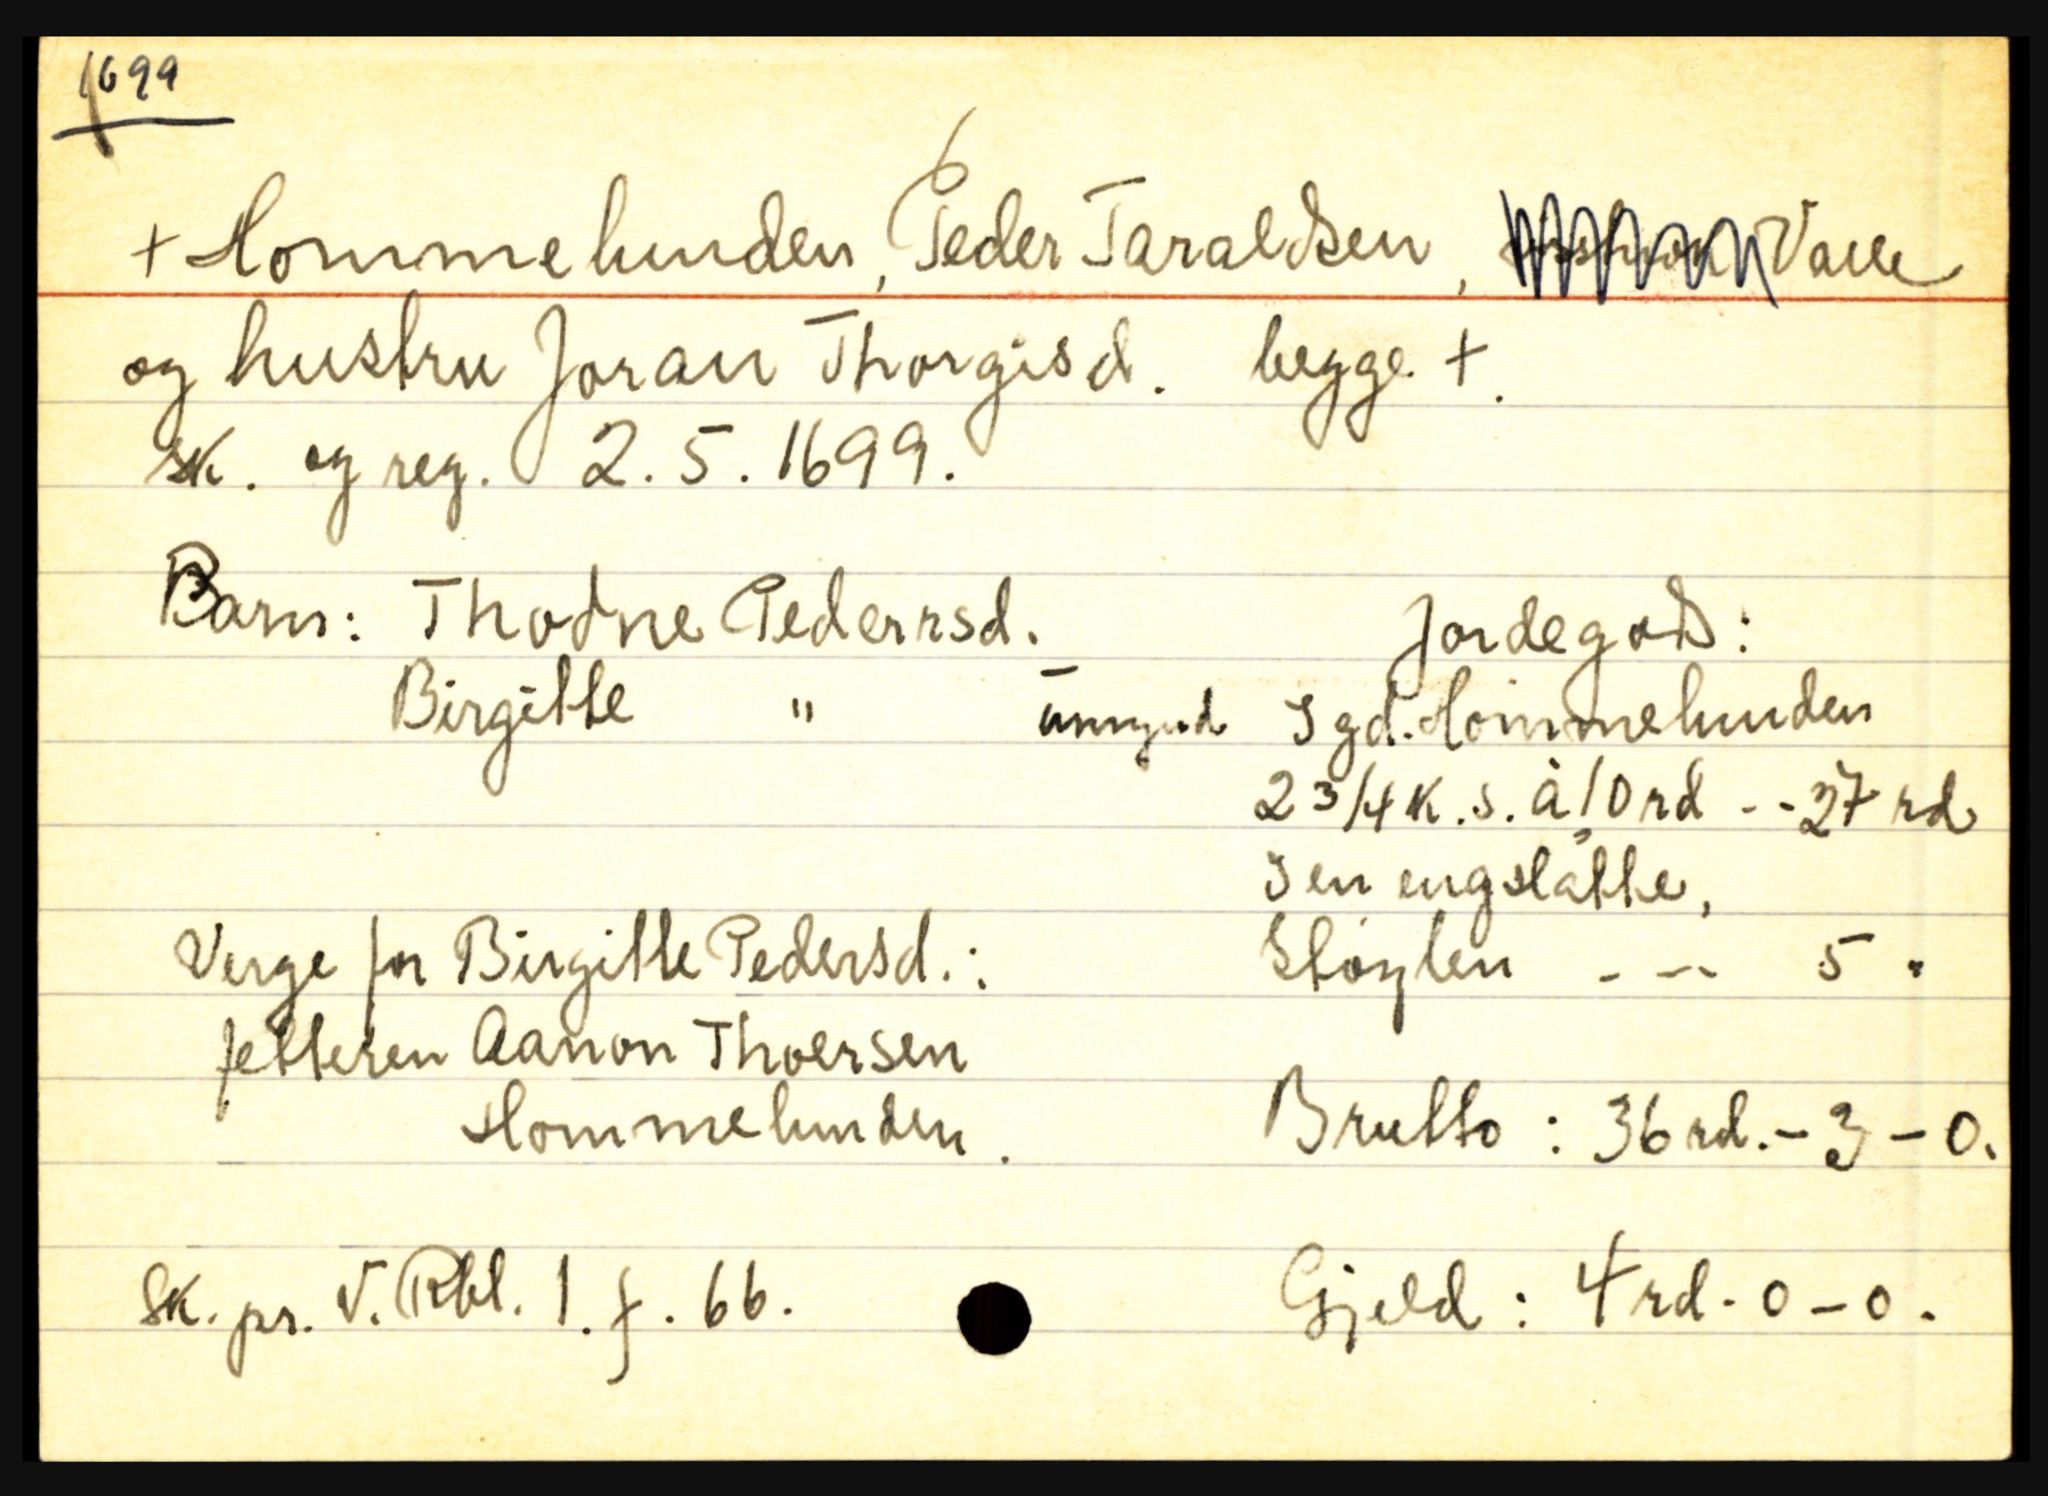 1699
+ Hommelunden, Peder Taraldsen, Valle
og hustru Joran Thorgisd. begge +.
sk. og reg. 2.5.1699.
Barn: Thodne Pedersd.
Birgitte " umynd
Jordegods:
I gd. Hommelunden
2 3/4 k.s. à 10 rd - - 27 rd
I en engslåtte,
Støylen - - - 5 "
Verge for Birgitte Pedersd.:
fetteren Aanon Thoersen
Hommelunden.
Brutto: 36 rd. - 3 - 0.
Gjeld: 4 rd - 0 - 0.
Sk. pr. V. Rbl. 1. f. 66.